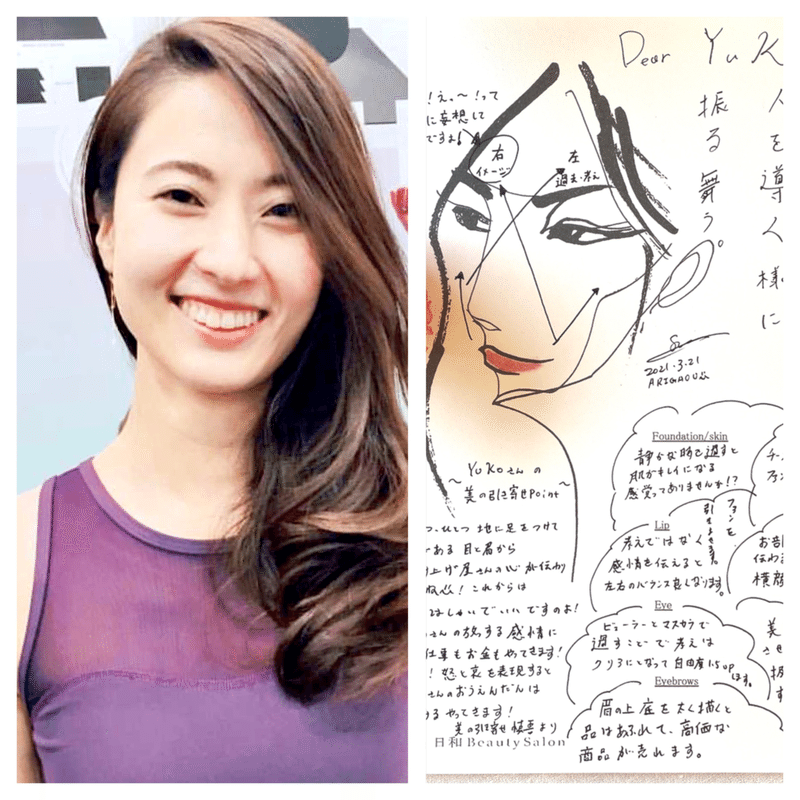 Dear YuK
人を導人様に
振る舞う。
！え。〜！って
に妄想して
ですよ！
右
イメージ
左
過去・考え
2021.3.21
ARIGAOU
〜 YuKoさんの
美の引き寄せPoint〜
つ、ひとつ 地に足をつけて
ある 目と眉から
上げ屋さんの心が伝わり
！これからは
はしゃいでいいですのよ！
さんの放する感情に
仕事もお金もやってきます！
！怒と哀を表現すると
さんのおうえんだんは
やってきます！
美の引寄せ 慎吾より
日和BeautySalon
Foundation/skin
静かな時を過すと
肌がキレイになる
感覚ってありませんか!?
Lip
考えではなく
感情を伝えると
左右のバランス良くなります。
ファンを
引きよせます。
Eye
ビューラーとマスカラで
過すことで考えは
クリアになって自由度1.5up
します。
Eyebrows
眉の上底を太く描くと
品はあふれて、高価な
商品が売れます。
お部
伝わ
横顔
美
させ
振
す